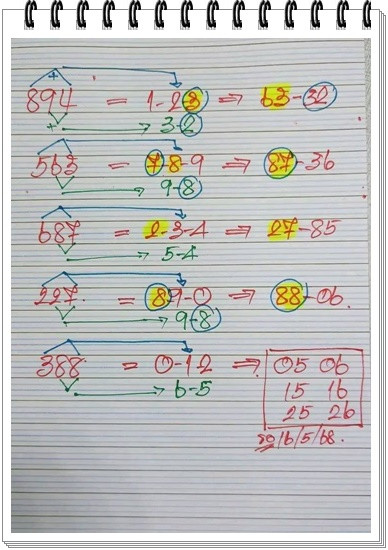 +
894 = 1-2-3 ⇒ 63-32
+ → 3-2
563 = 7-8-9 ⇒ 87-36
→ 9-8
687 = 2-3-4 ⇒ 27-85
→ 5-4
227. = 89-0 ⇒ 88-06.
→ 9-8
388 = 0-12 ⇒ 05 06
→ 6-5 15 16
25 26
/16/5/68.